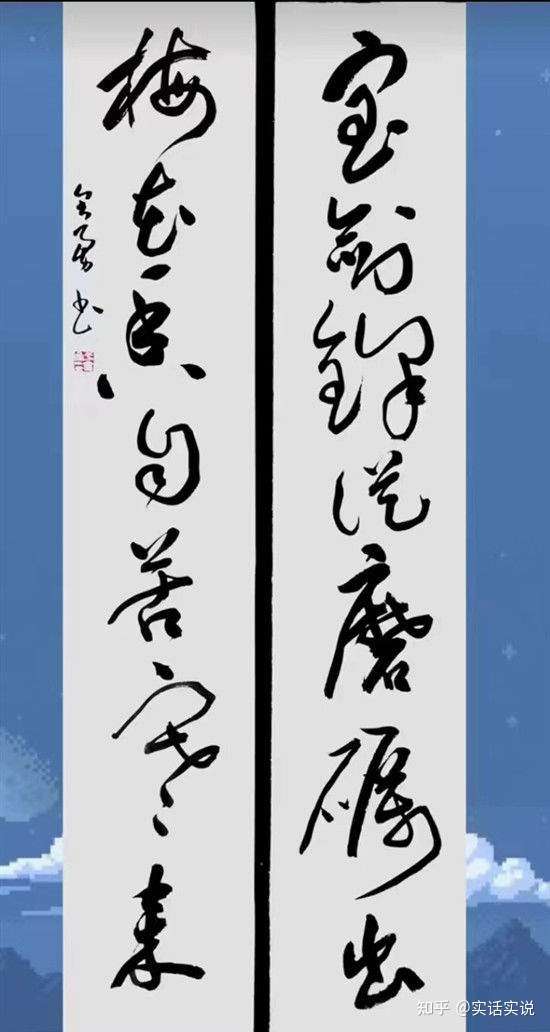 宝剑锋从磨砺出
梅花香自苦寒来
书
知乎 @实话实说